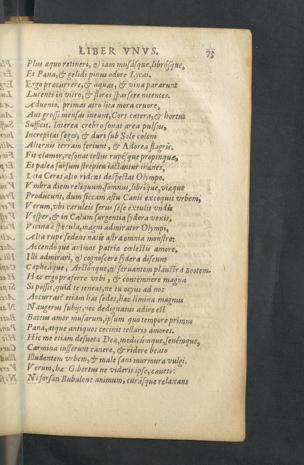 LIBER VNVS. 73
Plus aquo retineri, & iam musásque, librósque,
Et Pana, & gelidi pinus odore Lycæi.
Ergo præcurrere, & aquas, & vina pararunt
Lucenti in vitro, & flores sparsere nitentes.
Aduenio. primas atro lita mora cruore,
Aut grossi mensas ineunt, Cors cætera, & hortus
Sufficit. Interea crebro sonat area pulsu,
Increpitat seges, & duri sub Sole coloni
Alternis terram feriunt, & Adorea flagris.
Fit clamor, resonat tellus rupésque propinquæ,
Et paleæ sursum stropieu iactantur inanes,
Læta Ceres alto ridens despectat Olympo.
Vmbra diem reliquum, somnus, librique, viaque
Producunt, dum siccam astu Canis excoquit vrbem,
Verum, vbi ceruleis serus sese extulit vndis
Vesper, & in Cælum surgentia sydera vexit,
Vicina è specula, magni admirator Olympi,
Alta rupe sedens natis astra omnia monstro:
Accendóque animos patria cœlestis amore,
Illi admirari, & cognoscere sydera discunt
Cepheáque, Arctónque, & seruantem plaustra Booten.
Hæc ego præferre vrbi, & contemnere magna
Si possis, quid te teneas, ne tu ocyus ad nos
Accurras? etiam has sedes, hæc limina magnus
Naugerus subijt, nec dedignatus adire est
Battus amor musarum, ipsum quo tempore primum
Pana, atque antiquos cecinit tellaris amores.
Hic me etiam desueta Dea, mediciúmque, senémque,
Carmina iusserunt canere, & ridere beato
Illudentem vrbem, & male sani murmura vulgi.
Verum, hæc Gibertus ne videris ipse, caueto:
Ni forsan Bubulcus animum, curásque relaxans